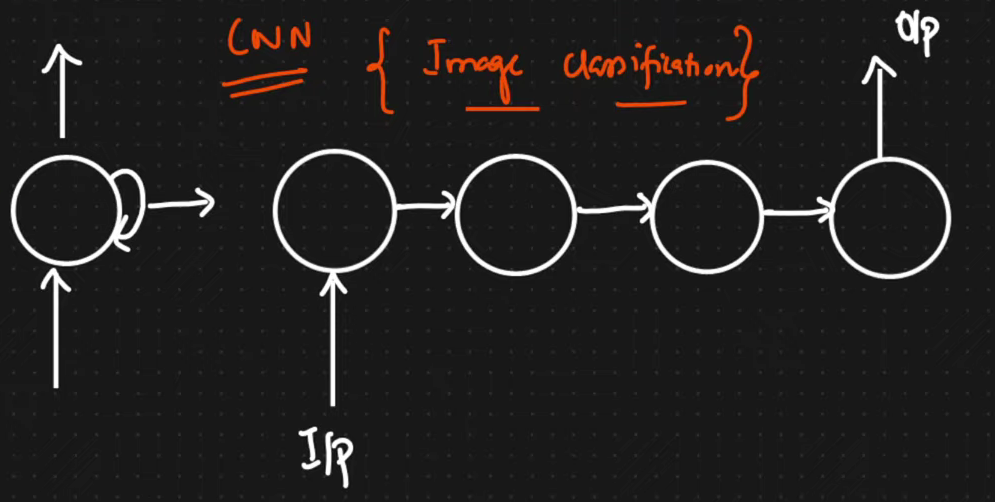 CNN { Image classification }
O/p
I/p